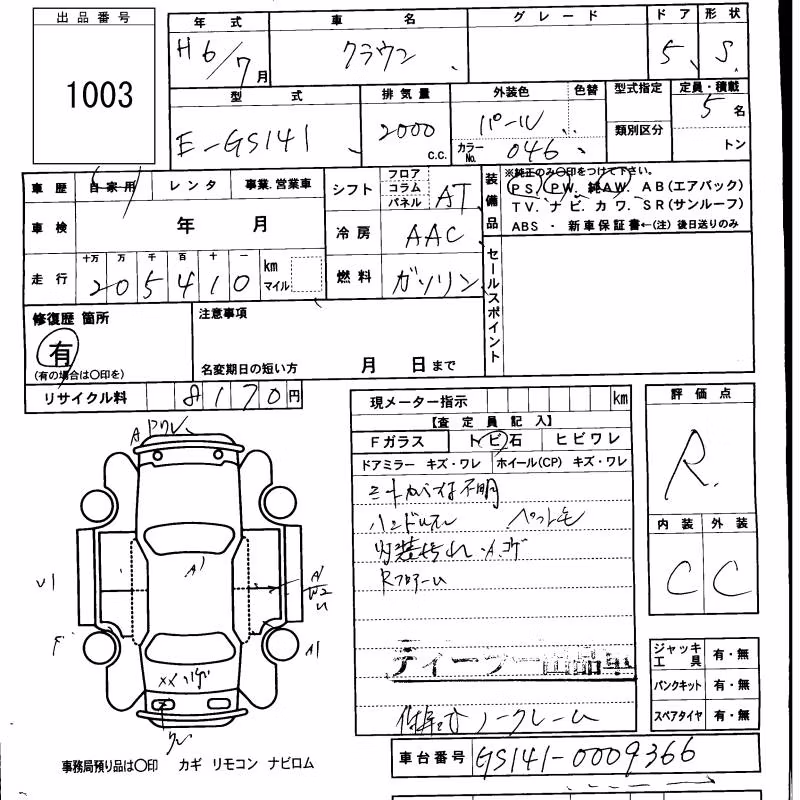 出品番号
1003
年式 車名 グレード ドア 形状
H6/7月 クラウン 5 S
型式 排気量 外装色 色替 型式指定 定員・積載
E-GS141 2000 C.C. パール カラーNo. 046 類別区分 5名 トン
車歴 自家用 レンタ 事業.営業車
車検 年 月
走行 十万 万 千 百 十 一
205410 km マイル
シフト フロア コラム パネル AT
冷房 AAC
燃料 ガソリン
装備品
※純正のみ〇印をつけて下さい。
PS. PW. 純AW. AB(エアバック)
TV. ナビ. カワ. SR(サンルーフ)
ABS ・ 新車保証書←(注) 後日送りのみ
セールスポイント
修復歴 箇所
有
(有の場合は〇印を)
注意事項
名変期日の短い方 月 日まで
リサイクル料 8170円
現メーター指示 km
【査定員記入】
Fガラス トビ石 ヒビワレ
ドアミラー キズ・ワレ ホイール(CP) キズ・ワレ
評価点
R
内装 外装
C C
シートカバー 不明
ハンドル
内装 ヨゴ
Rフロアー
ディーラー
ノークレーム
ジャッキ工具 有・無
パンクキット 有・無
スペアタイヤ 有・無
A ワレ
A1
U1
A1
W2
U
A1
XX
事務局預り品は〇印 カギ リモコン ナビロム
車台番号 GS141-0009366